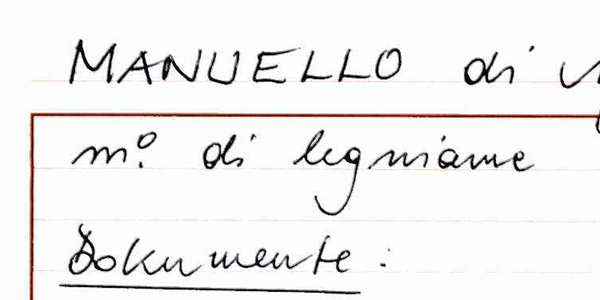 MANUELLO di
m.º di legniame
Dokumente :